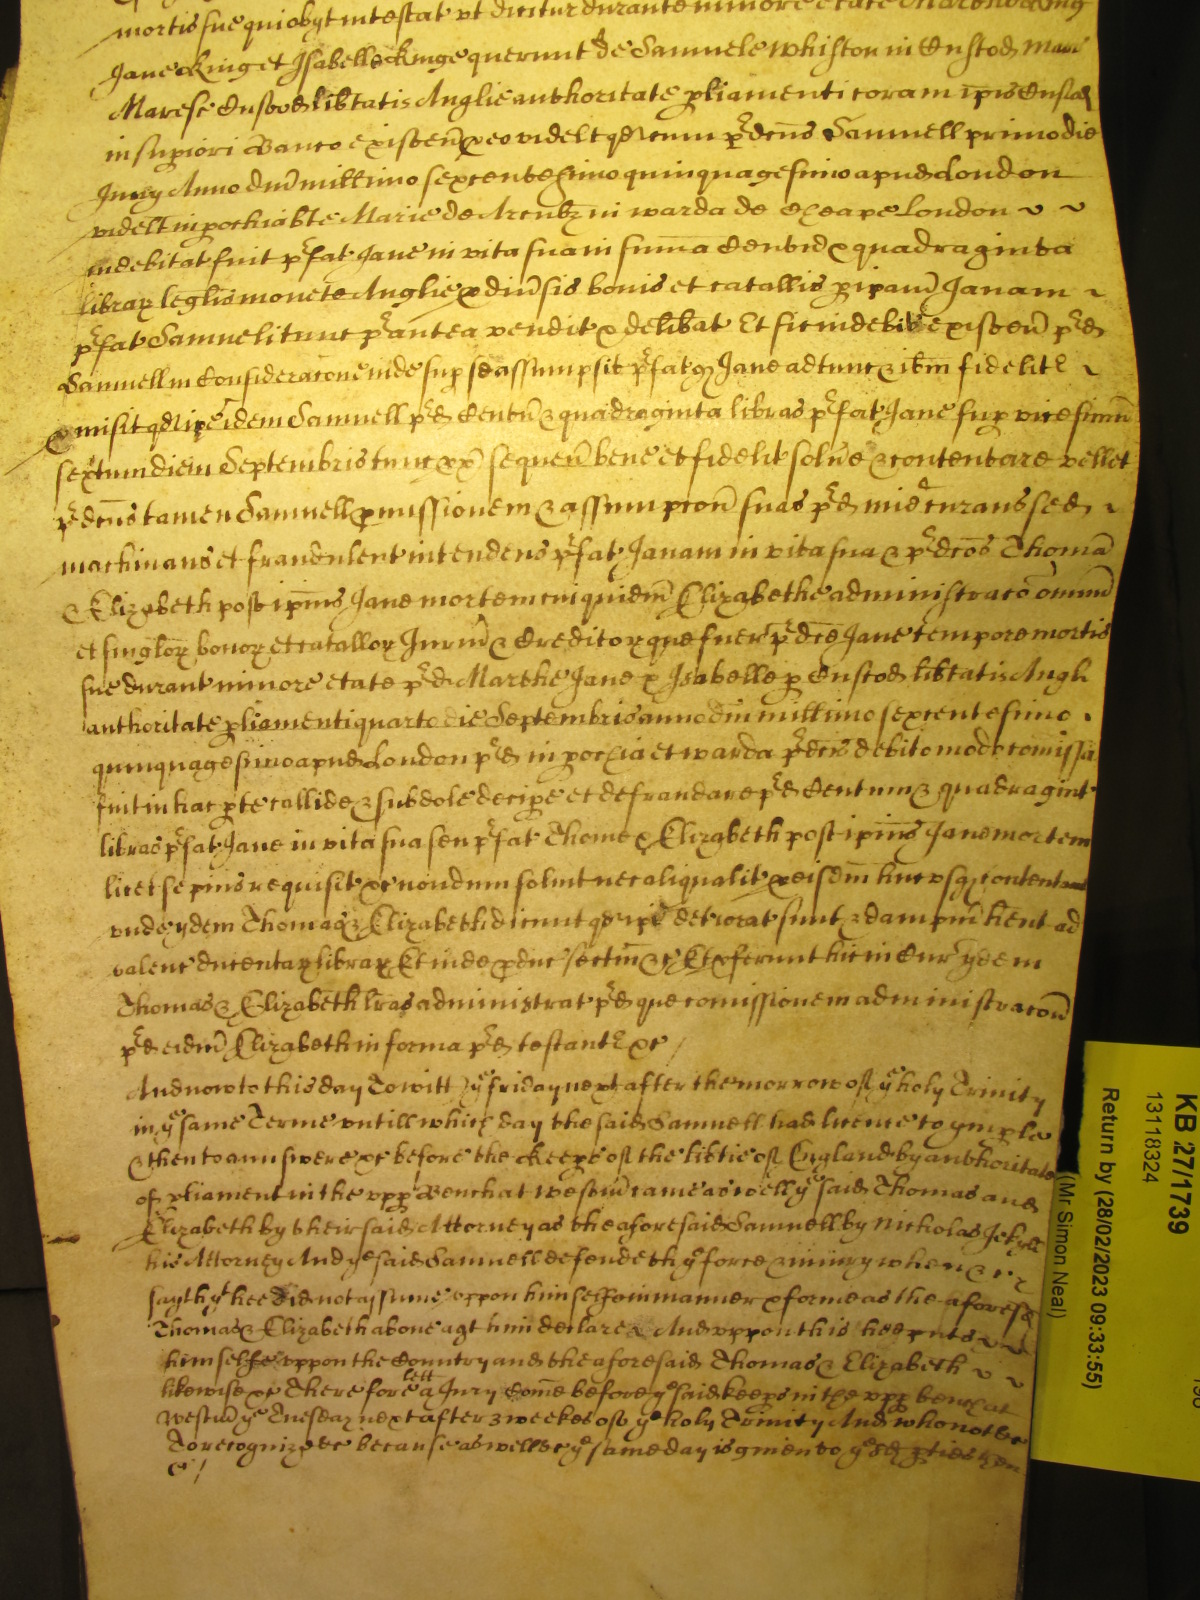 mortis sue qui obijt intestat ut dicitur durante minore etate
Jane Kinge et Isabelle Kinge querunt de Samuele Whiston in Custod Marr
Maresc Custod libtatis Anglie authoritate pliamenti coram ipis Custod
in supiori Banco existen p eo videlt qd cum pdcus Samuell primo die
Juny Anno dni millimo sexcentesimo quinquagesimo apud London
videlt in pochia bte Marie de Arcubz in warda de Cheape London
indebitat fuit pfat Jane in vita sua in suma Centu & quadraginta
librar leglis monete Anglie p diusis bonis et catallis p ipam Janam
pfat Samueli tunc p antea vendit & delibat Et sic indebit existen pd
Samuell in Consideracone inde sup se assumpsit pfatq Jane adtunc & ibm fidelit
pmisit qd ipe idem Samuell pd Centu & quadraginta libras pfat Jane sup vicesimu
sextum diem Septembris tunc px sequen bene et fidelit solve & contentare vellet
pdcus tamen Samuell pmissionem & assumpcon suas pd minie curans sed
machinans et fraudulent intendens pfat Janam in vita sua & pdcos Thoma
& Elizabeth post ipius Jane mortem cui quidm Elizabethe administraco omniu
et singlor bonor et catallor Juriu & Creditor que fuer pdce Jane tempore mortis
sue durant minore etate pd Marthe Jane & Isabelle p Custod libtatis Angl
authoritate pliamenti quarto die Septembris anno dni millimo sexcentesimo
quinquagesimo apud London pd in pochia et warda pdcis debito modo comissa
fuit in hac pte callide & subdole decipe et defraudare pd Centum & quadragint
libras pfat Jane in vita sua seu pfat Thome & Elizabeth post ipius Jane mortem
licet sepius requisit &c nondum soluit nec aliqualit p eisdm huc usq contentauit
unde ydem Thomas & Elizabeth dicunt qd ipi detiorat sunt & dampnu hent ad
valenc ducentar librar Et inde pduc sectam &c Et pferunt hic in Cur ydem
Thomas & Elizabeth lras administrat pd que comissionem administracon
pd eidm Elizabeth in forma pd testant &c
And now to this day To witt ye friday next after the morrow of ye holy Trinity
in ye same Terme untill which day the said Samuell had licence to ymple
& then to answere &c before the Keeps of the libtie of England by authoritate
of pliament in the upp Bench at Westm came as well ye said Thomas and
Elizabeth by their said Attorney as the aforesaid Samuell by Nicholas Jekyll
his Attorney And ye said Samuell defendeth ye force & iniury when &c &
sayth yt hee did not assume uppon himselfe in manner & forme as the aforesd
Thomas & Elizabeth above agt him declare And uppon this hee puts
himselfe uppon the Country and the aforesaid Thomas & Elizabeth
likewise &c Therefore lett a Jury Come before ye said keeps in the upp bench at
Westm ye Tuesday next after 3 weekes of ye holy Trinity And who not &c
To recognize &c because as well &c ye same day is given to ye sd pties then
&c /
KB 27/1739
13118324
Return by (28/02/2023 09:33:55)
(Mr Simon Neal)